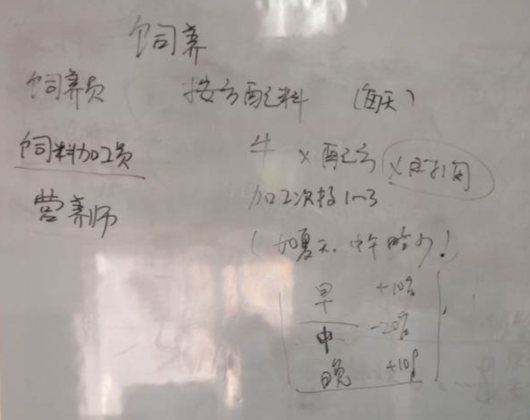 饲养
饲养员 按方配料 (每天)
饲料加工员 牛 x 配方 x 时间
营养师 加工次数 1~3
(如夏天, 中午
早 +10%
中 -20%
晚 +10%